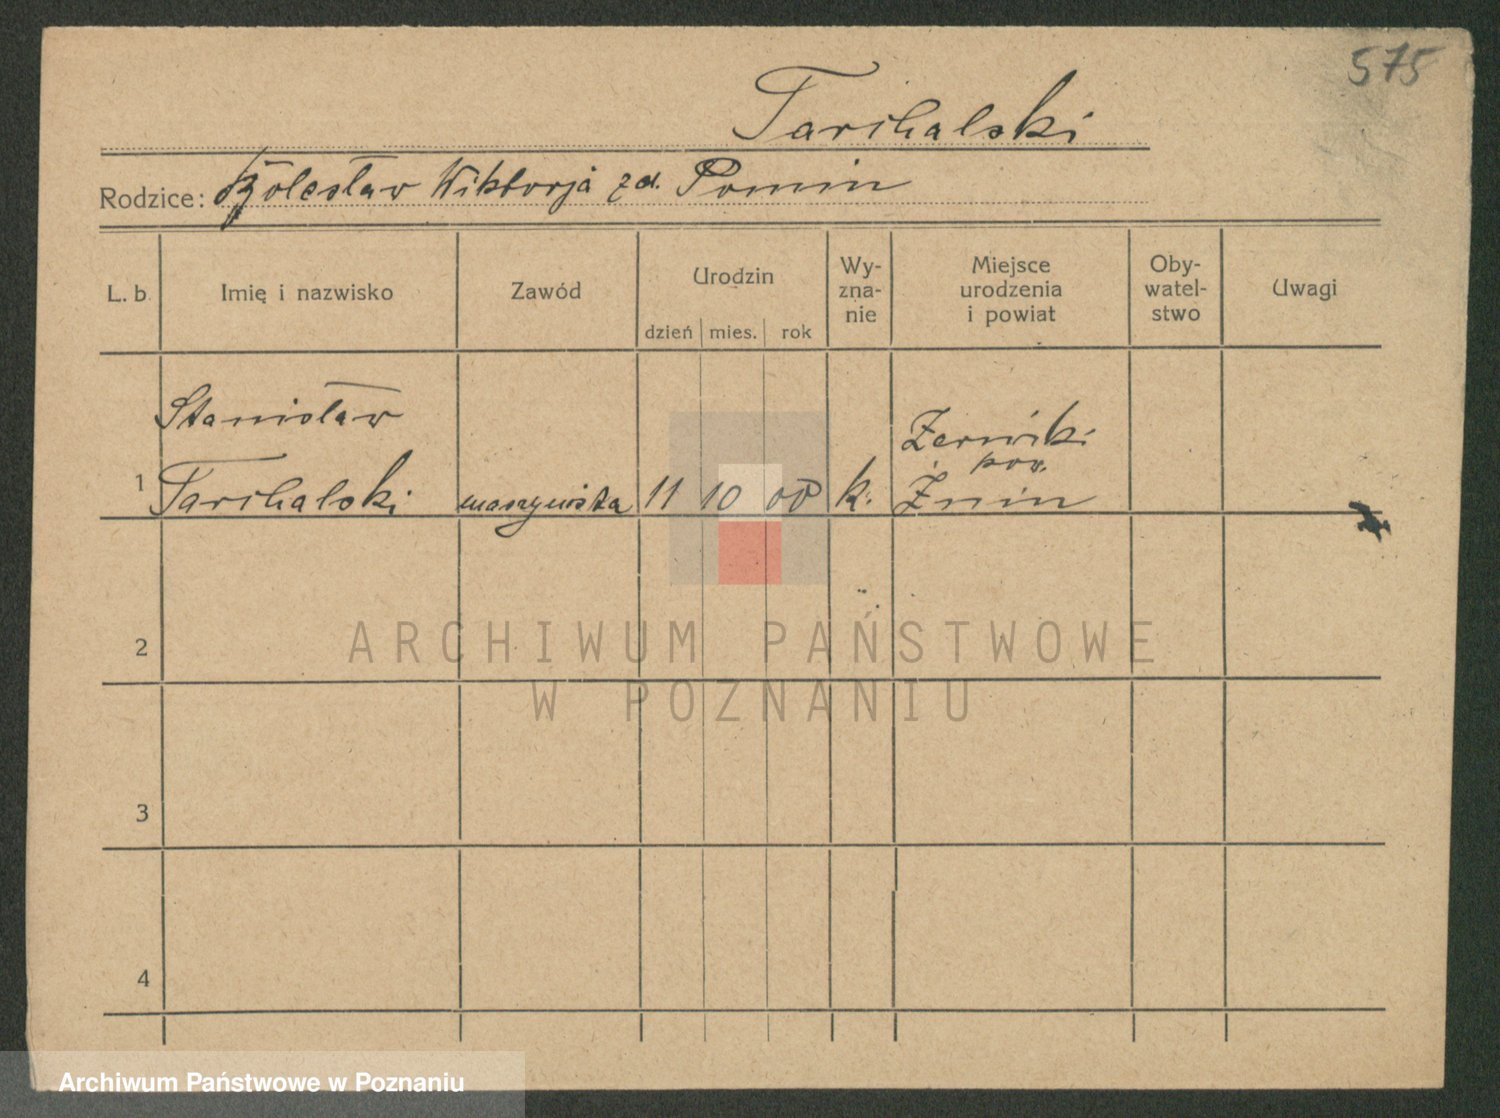 575
Tarchalski
Rodzice: Bolesław Wiktorja zd. Pomin
L. b. Imię i nazwisko Zawód Urodzin Wy-zna-nie Miejsce urodzenia i powiat Oby-watel-stwo Uwagi
dzień mies. rok
Stanisław Żerniki
pow.
1 Tarchalski maszynista 11 10 00 k. Żnin
2
ARCHIWUM PAŃSTWOWE
W POZNANIU
3
4
Archiwum Państwowe w Poznaniu